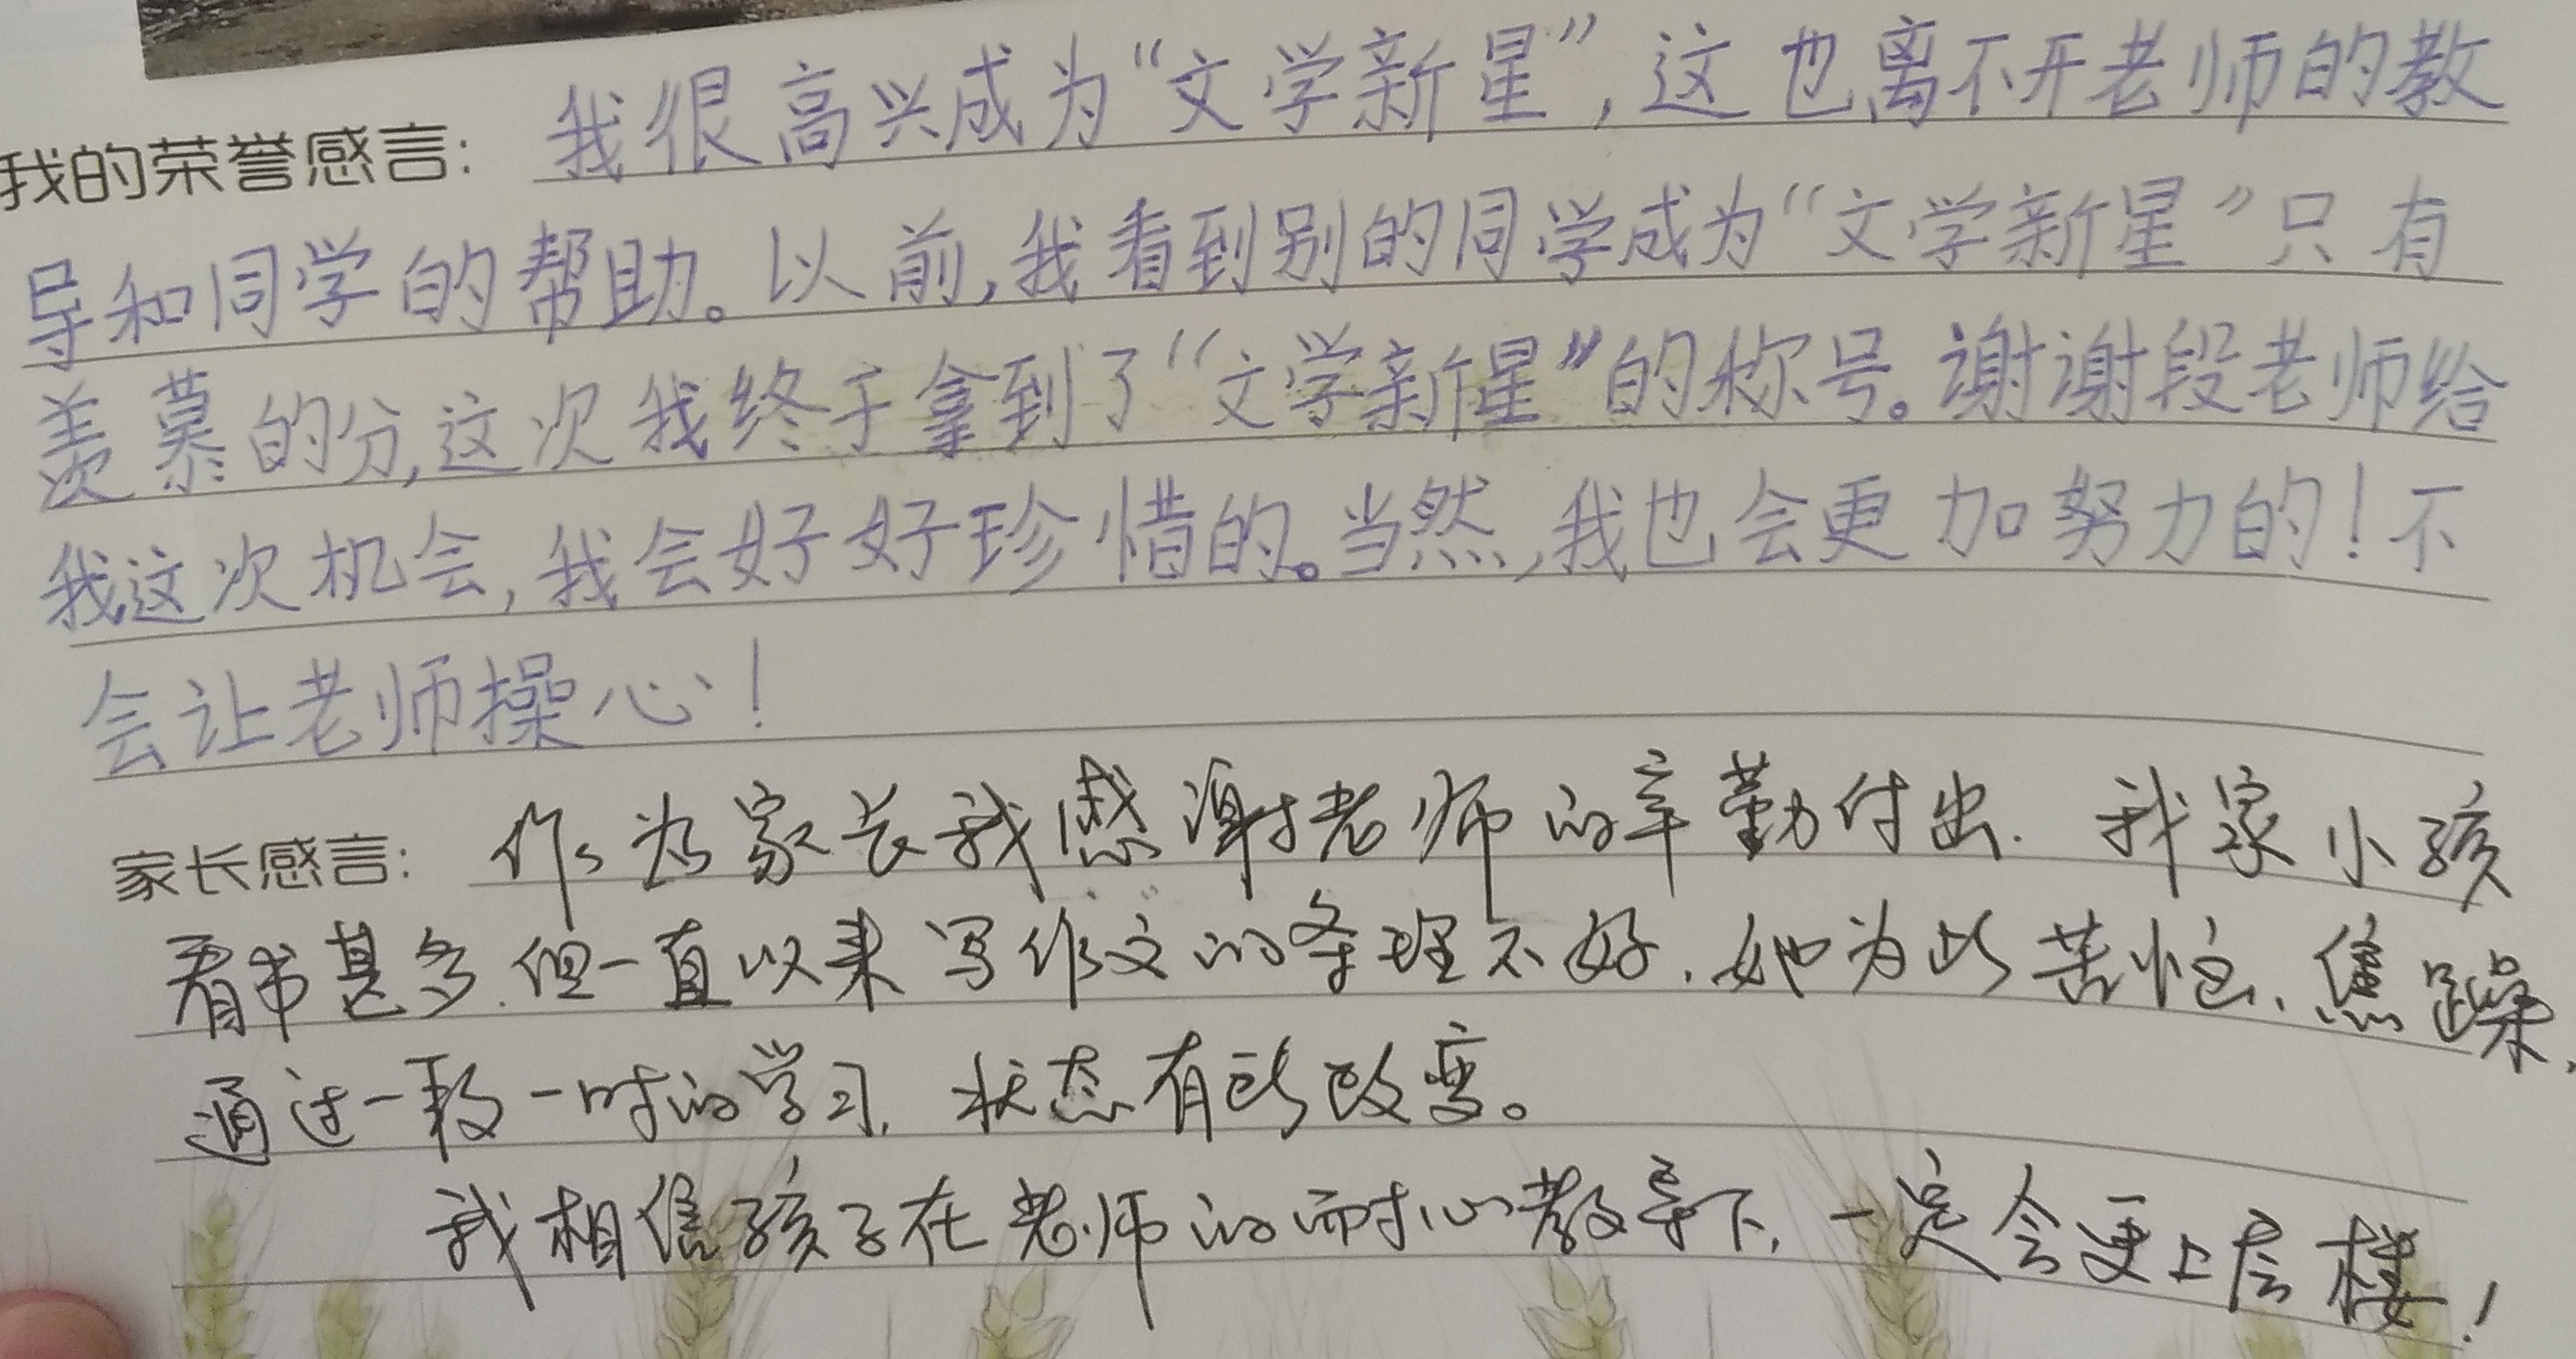 我的荣誉感言：我很高兴成为“文学新星”，这也离不开老师的教
导和同学的帮助。以前，我看到别的同学成为“文学新星”只有
羡慕的分，这次我终于拿到了“文学新星”的称号。谢谢段老师给
我这次机会，我会好好珍惜的。当然，我也会更加努力的！不
会让老师操心！
家长感言：作为家长我感谢老师的辛勤付出. 我家小孩
看书甚多.但一直以来写作文的条理不好.她为此苦恼、焦躁,
通过一段一时的学习, 状态有所改变。
我相信孩子在老师的耐心教导下,一定会更上层楼!